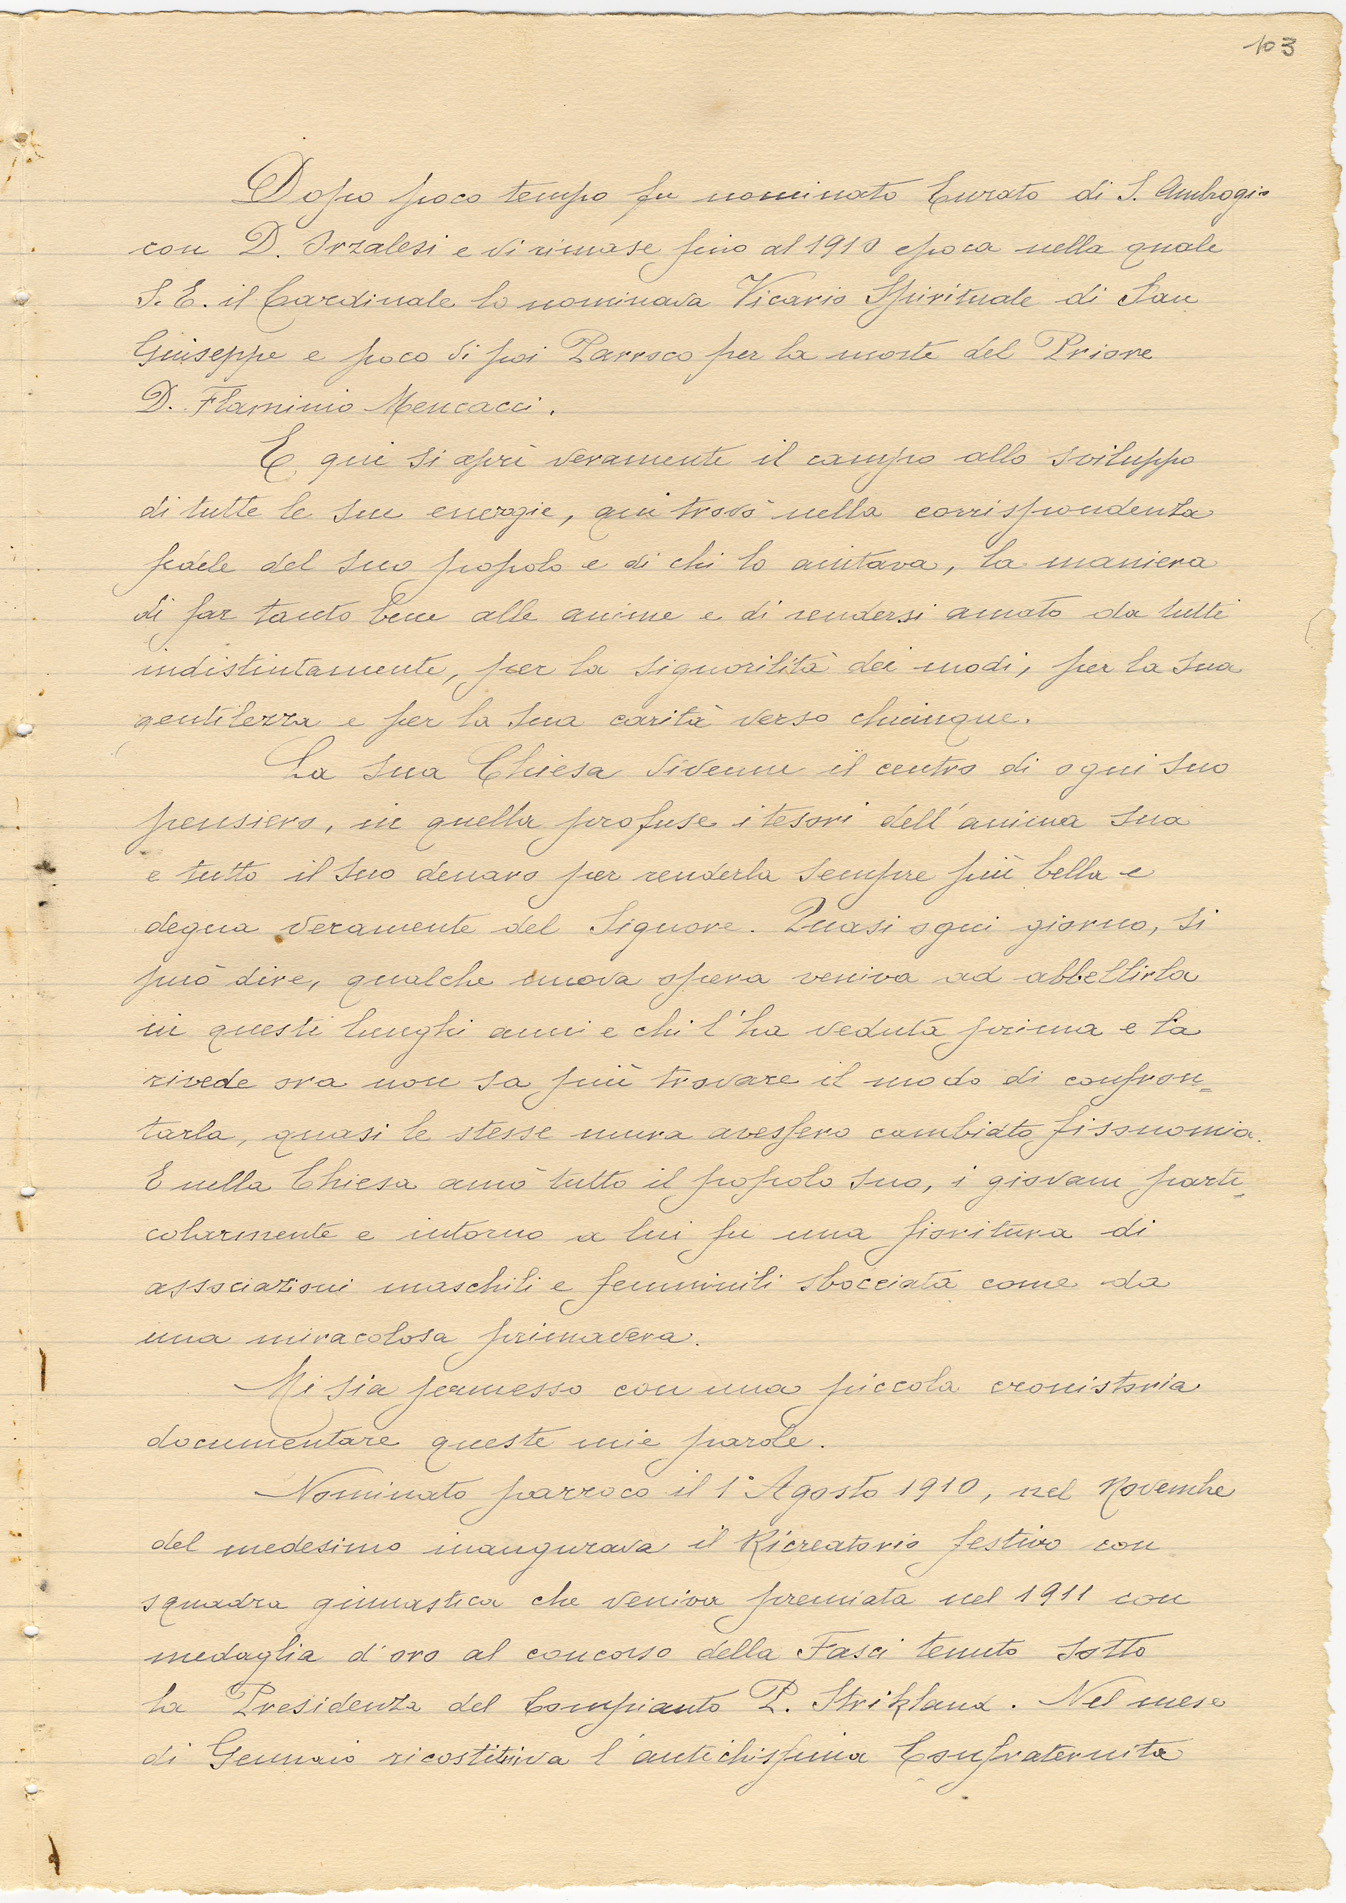 103
Dopo poco tempo fu nominato Curato di S. Ambrogio
con D. Orzalesi e vi rimase fino al 1910 epoca nella quale
S. E. il Cardinale lo nominava Vicario Spirituale di San
Giuseppe e poco di poi Parroco per la morte del Priore
D. Flaminio Mencacci.
E qui si aprì veramente il campo allo sviluppo
di tutte le sue energie, qui trovò nella corrispondenza
fedele del suo popolo e di chi lo aiutava, la maniera
di far tanto bene alle anime e di rendersi amato da tutti
indistintamente, per la signorilità dei modi, per la sua
gentilezza e per la sua carità verso chiunque.
La sua Chiesa divenne il centro di ogni suo
pensiero, in quella profuse i tesori dell'anima sua
e tutto il suo denaro per renderla sempre più bella e
degna veramente del Signore. Quasi ogni giorno, si
può dire, qualche nuova opera veniva ad abbellirla
in questi lunghi anni e chi l'ha veduta prima e la
rivede ora non sa più trovare il modo di confron=
tarla, quasi le stesse mura avessero cambiato fisonomia.
E nella Chiesa amò tutto il popolo suo, i giovani parti=
colarmente e intorno a lui fu una fioritura di
associazioni maschili e femminili sbocciata come da
una miracolosa primavera.
Mi sia permesso con una piccola cronistoria
documentare queste mie parole.
Nominato parroco il 1° Agosto 1910, nel Novembre
del medesimo inaugurava il Ricreatorio festivo con
squadra ginnastica che veniva premiata nel 1911 con
medaglia d'oro al concorso della Fasci tenuto sotto
la Presidenza del Compianto P. Strikland. Nel mese
di Gennaio ricostituiva l'antichissima Confraternita